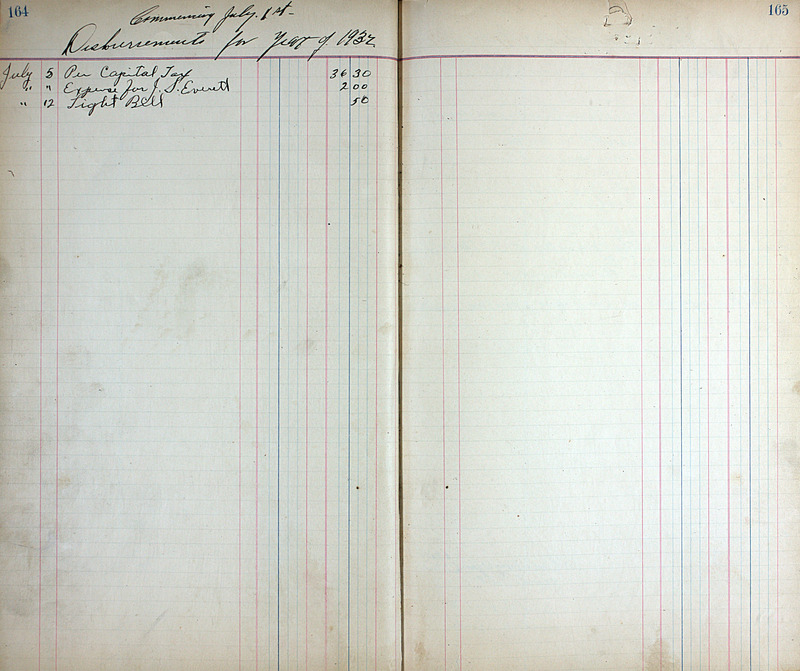 164
Commencing July. 1st.
Disbursements for Year of 1932
July 5 Per Capital Tax 36 30
" " Expense for J. S. Everett 2 00
" 12 Light Bill 50
165